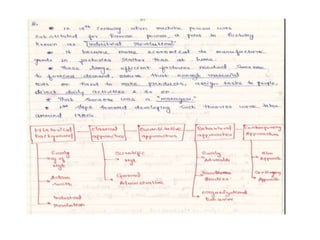 * in 18th Century when machine power was
substituted for human power, a point in history
known as "Industrial Revolution".
* It became more economical to manufacture
goods in factories rather than at home.
* These large efficient factories needed someone
to forecast demand, ensure that enough material
was on hand to make products, assign tasks to people,
direct daily activities & so on.
* That someone was a "manager".
* 1st steps toward developing such theories were taken
around
Historical Background
Classical approaches
Quantitative approaches
Behavioral approaches
Contemporary Approaches
Early
Adam Smith
Industrial Revolution
Scientific
General Administrative
Early Advocates
Hawthorne Studies
Organizational Behavior
Approach
Contingency Approach